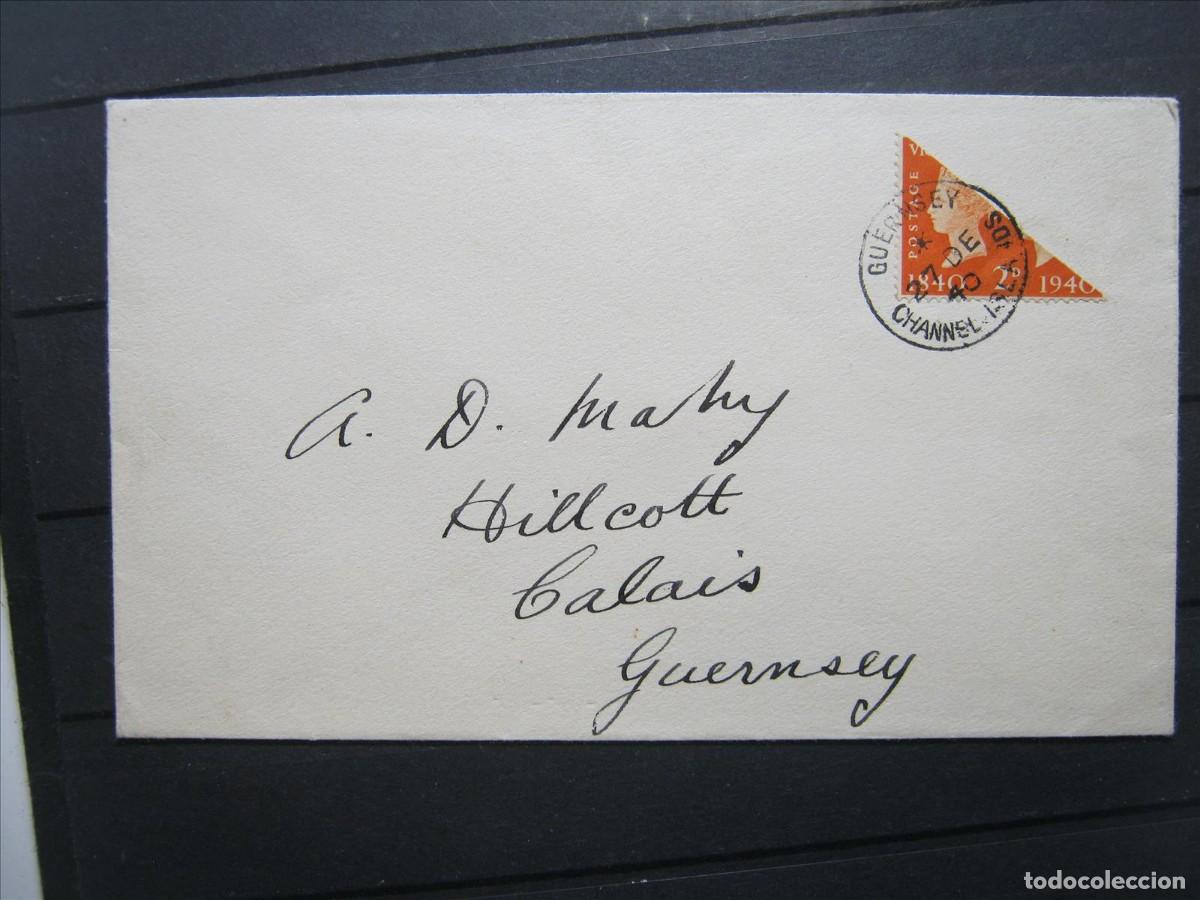 VI
POSTAGE
1840 2D 1940
GUERNSEY
27 DE
40
CHANNEL ISLANDS
A. D. Mahy
Hillcott
Calais
Guernsey
todocoleccion